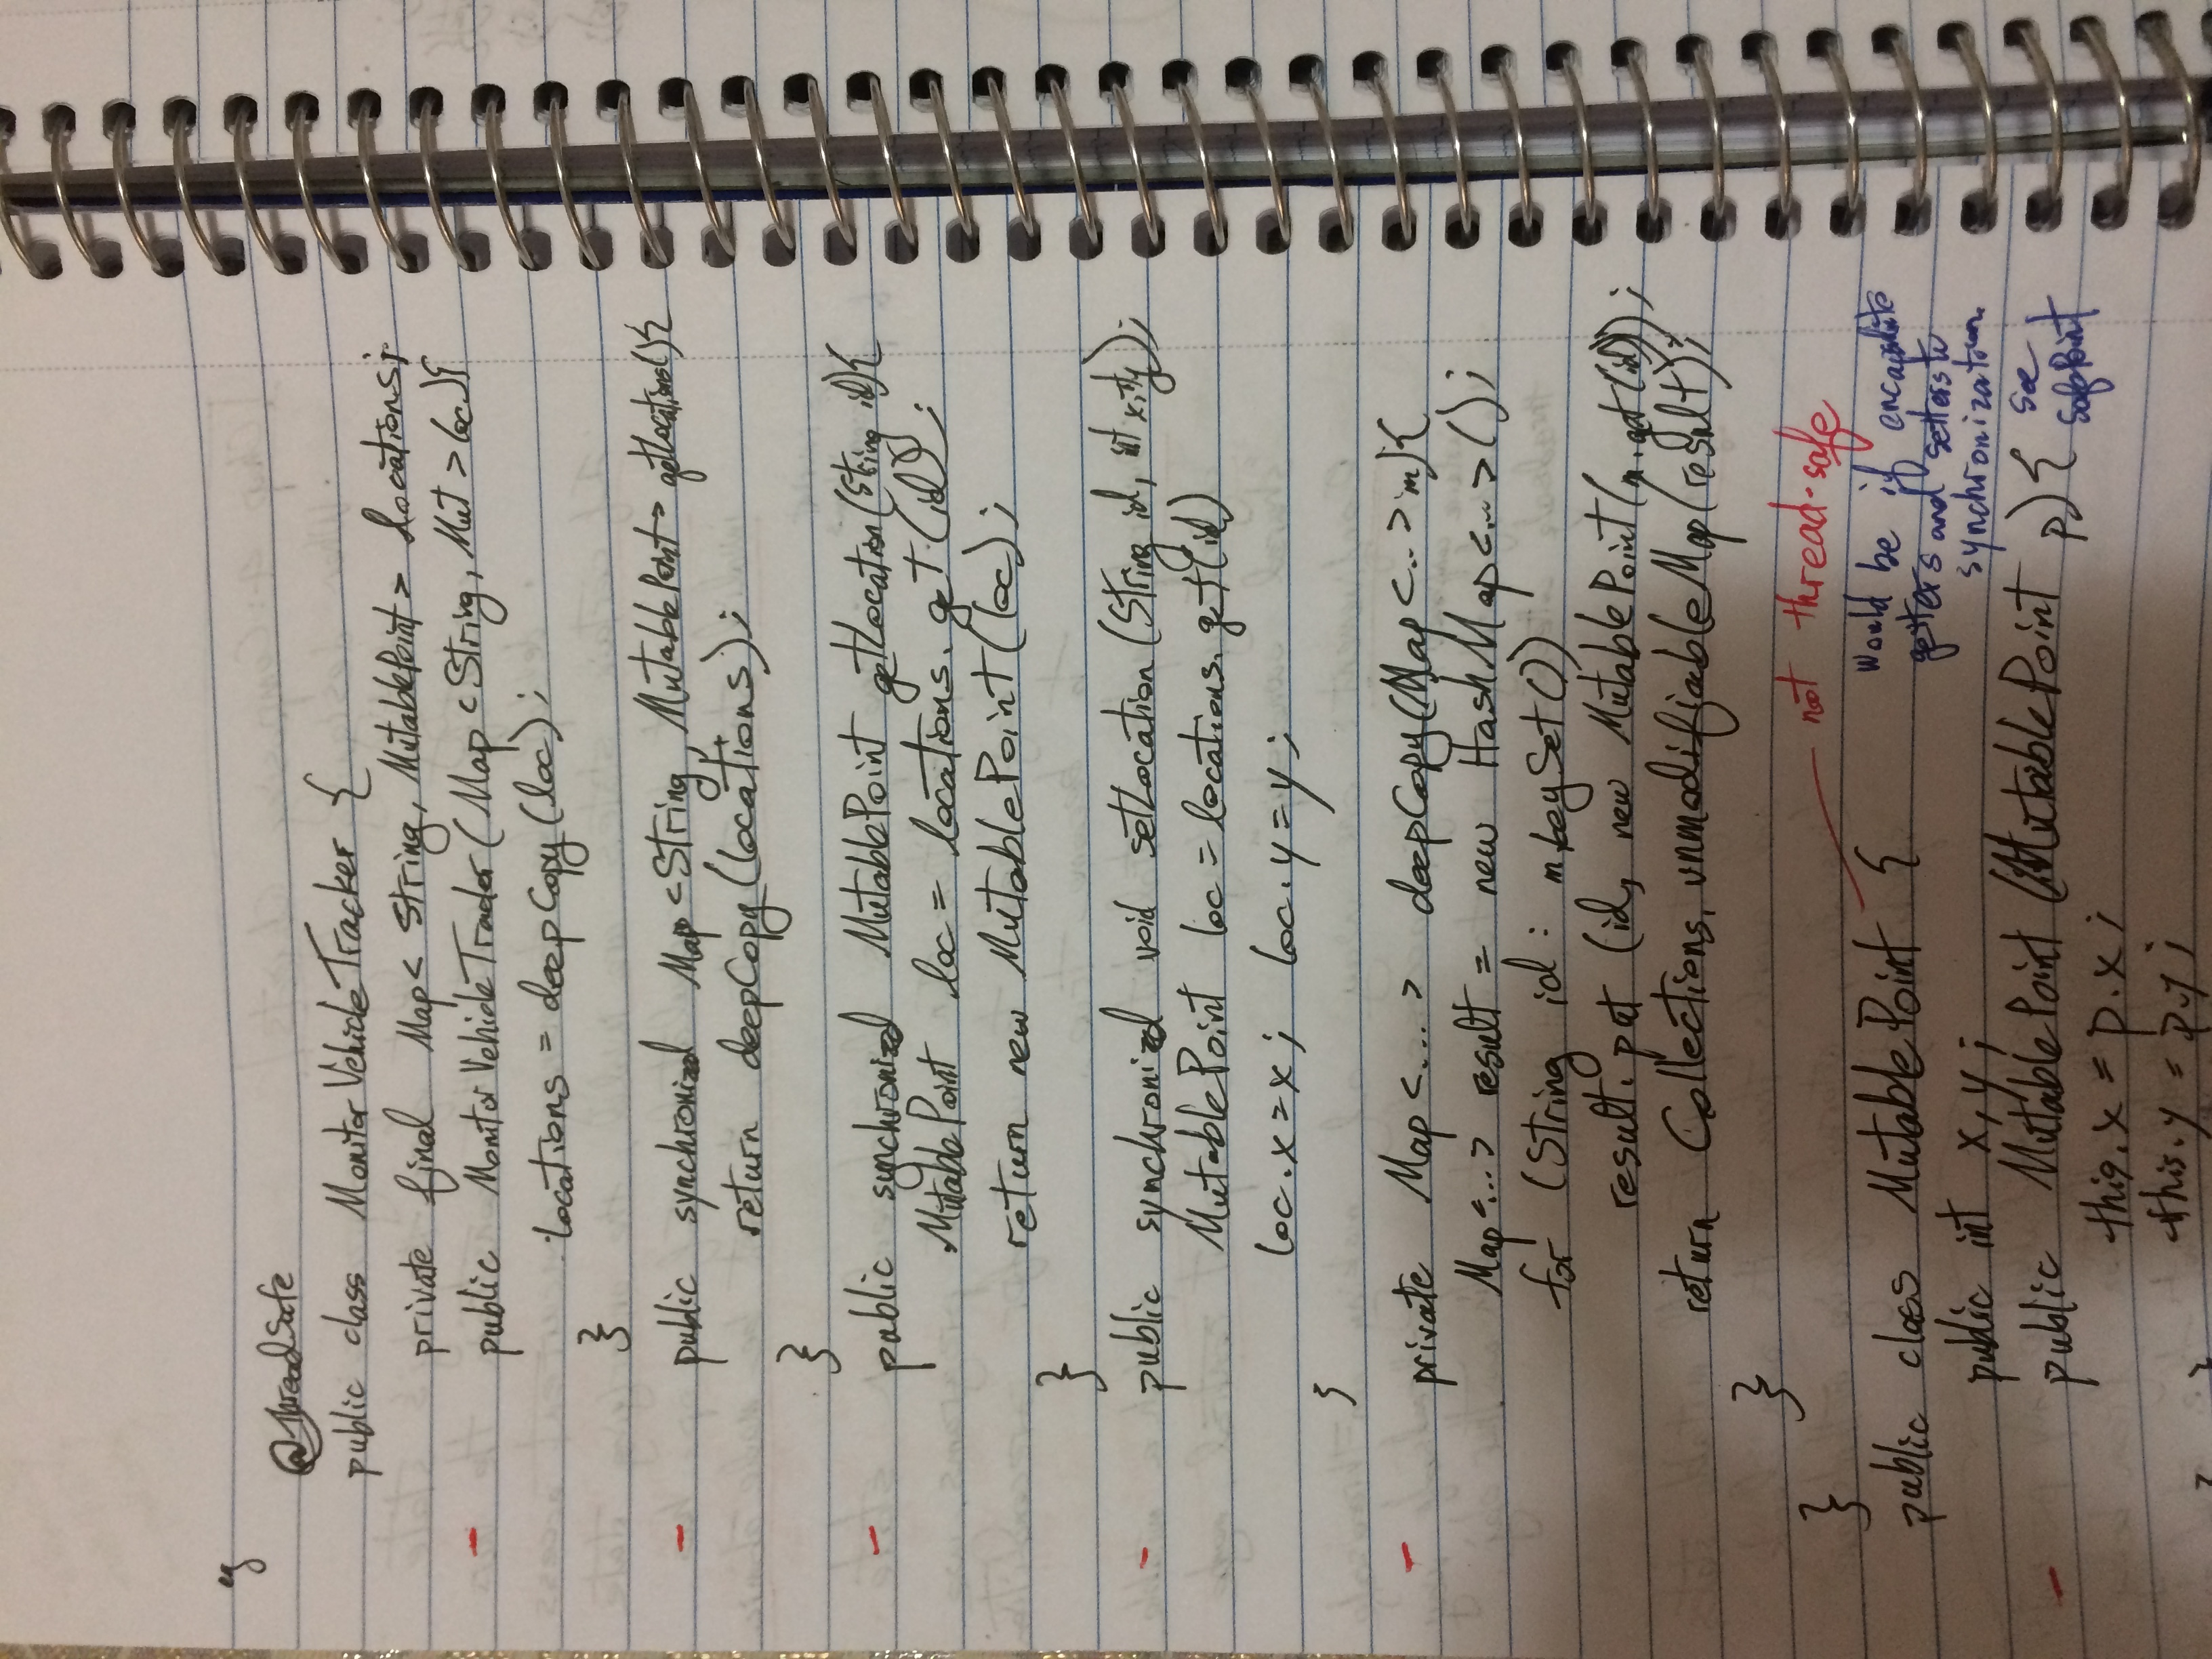 eg
@ThreadSafe
public class MonitorVehicleTracker {
private final Map< String, MutablePoint> locations;
- public MonitorVehicleTrader (Map <String, Mut > loc){
locations = deepCopy (loc);
}
- public synchronized Map <String, MutablePoint> getLocations(){
return deepCopy (locations);
}
- public synchronized MutablePoint getLocation(String id){
MutablePoint loc = locations. get (id);
return new MutablePoint (loc);
}
- public synchronized void setLocation (String id, int x, int y);
MutablePoint loc = locations. get (id)
loc.x = x; loc.y = y;
}
- private Map <....> deepCopy (Map <..> m){
Map <...> result = new HashMap <...> ();
for (String id : m.keySet ())
result. put (id, new MutablePoint (m.get (id)));
return Collections. unmodifiableMap (result);
}
}
not thread-safe
public class MutablePoint {
would be if encapsulate
getters and setters w
synchronization.
see
SafePoint
public int x, y;
- public MutablePoint (MutablePoint p) {
this.x = p.x;
this.y = p.y;
} }